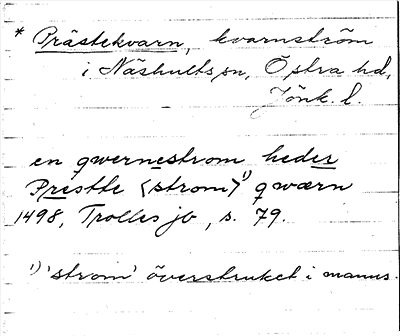 * Prästekvarn, kvarnström
i Näshults sn, Östra hd,
Jönk. l.
en qwernestrom heder
Prestte <strom>¹⁾ qwærn
1498, Trolles jb, s. 79.
¹⁾ 'strom' överstruket i manus.